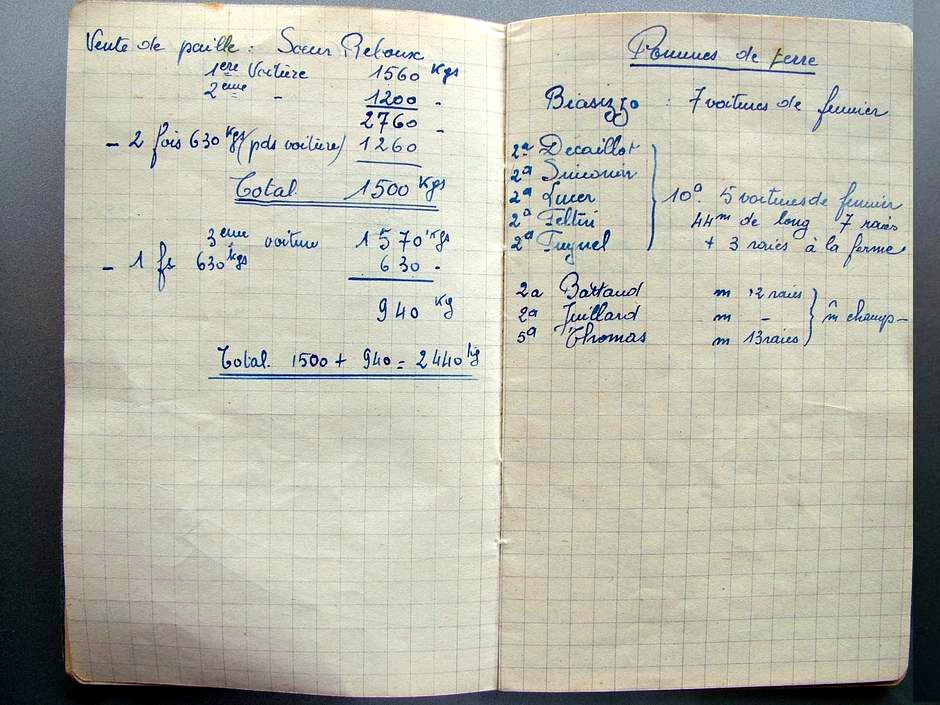 Vente de paille : Sœur Reboux
1ère Voitière 1560 Kgs
2ème - 1200 -
2760 -
- 2 fois 630 Kgs (pds voitière) 1260
Total 1500 Kgs
3ème voiture 1570 Kgs
- 1 fs 630 kgs 630 -
940 Kg
Total. 1500 + 940 = 2440 kg
Pommes de terre
Biasizzo : 7 voitures de fumier
2a Decaillot
2a Simonin
2a Lucer
2a Feltin
2a
10a. 5 voitures de fumier
44m de long 7 raies
+ 3 raies à la ferme
2a Battaud m 12 raies
2a Juillard m -
5a Thomas m 13 raies
m̂ champ -